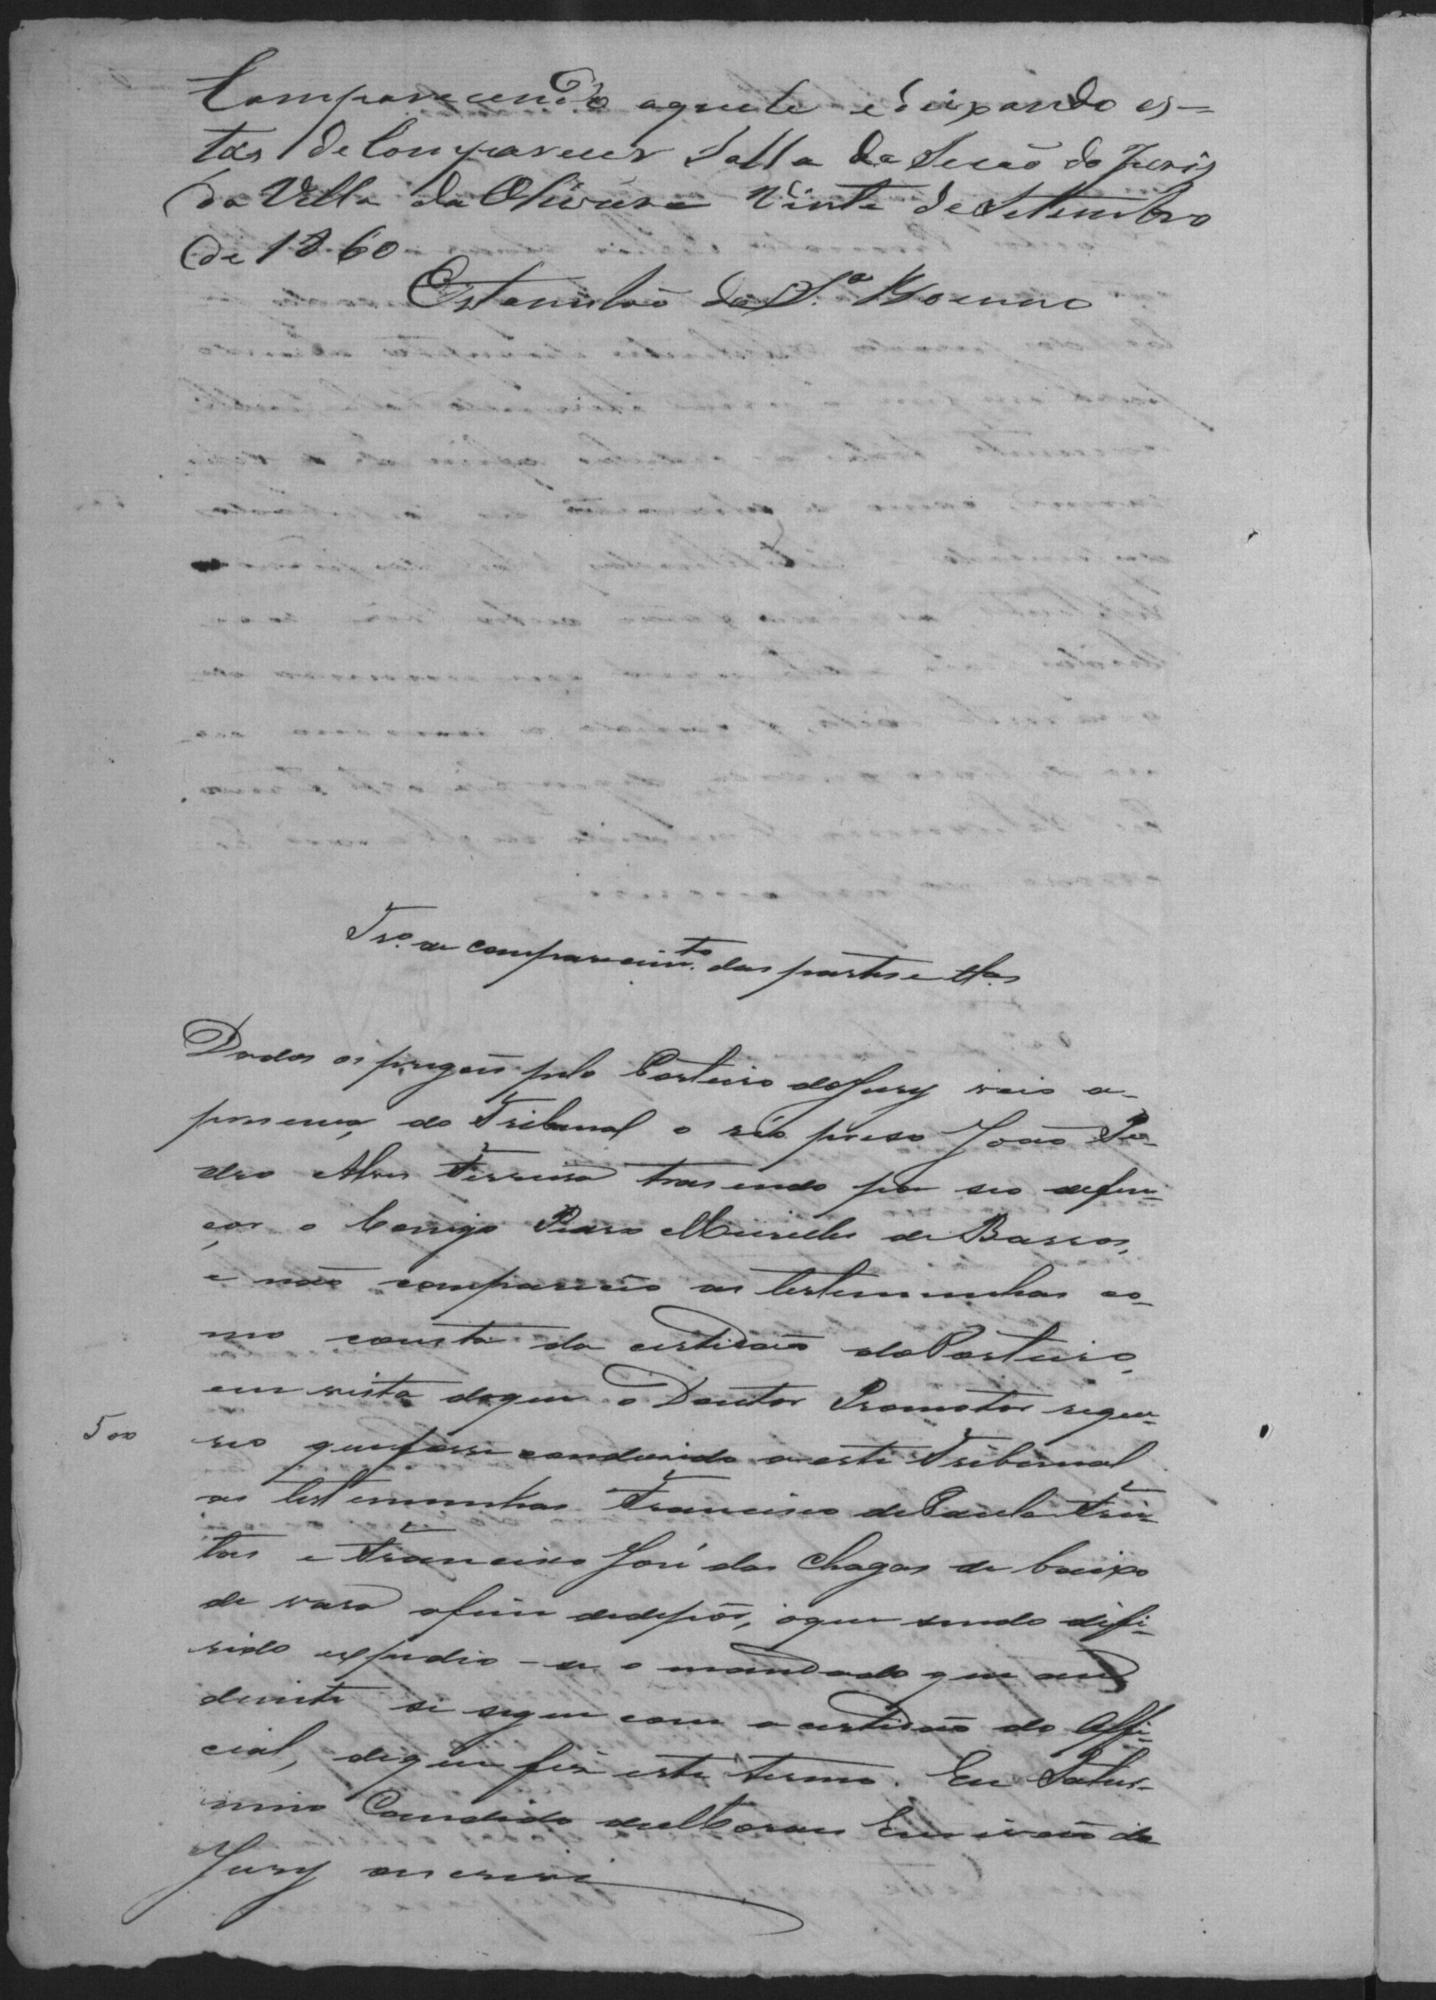 Comparecendo aquele e deixando es-
tas de Comparecer Salla da Secão do Juris
da Villa da Oliveira Vinte de Setembro
de 1860
Estanislao da S.ª
Tr.º de comparecim.to das partes e tt.as
Dados os pregois pelo Porteiro do Jury veio a
presença do Tribunal o réo preso João Pe-
dro Alves Ferreira trasendo por seo defen-
çor o Conigo Pedro Meirelles de Barros,
e não comparecêo as testemunhas co-
mo consta da certidaõ do Porteiro,
em vista do que o Doutor Promotor reque-
reo que fosse condusido a este Tribunal
500
as testemunhas Francisco de Paula Frei-
tas e Francisco José das Chagas de baixo
de vara afim de depôr, o que sendo defi-
rido expedio-se o mandado que
diante se segue com a certidaõ do Offi-
cial, de que fis este termo. Eu Satur-
nino Candido de Moraes Escrivaõ do
Jury o escrevi